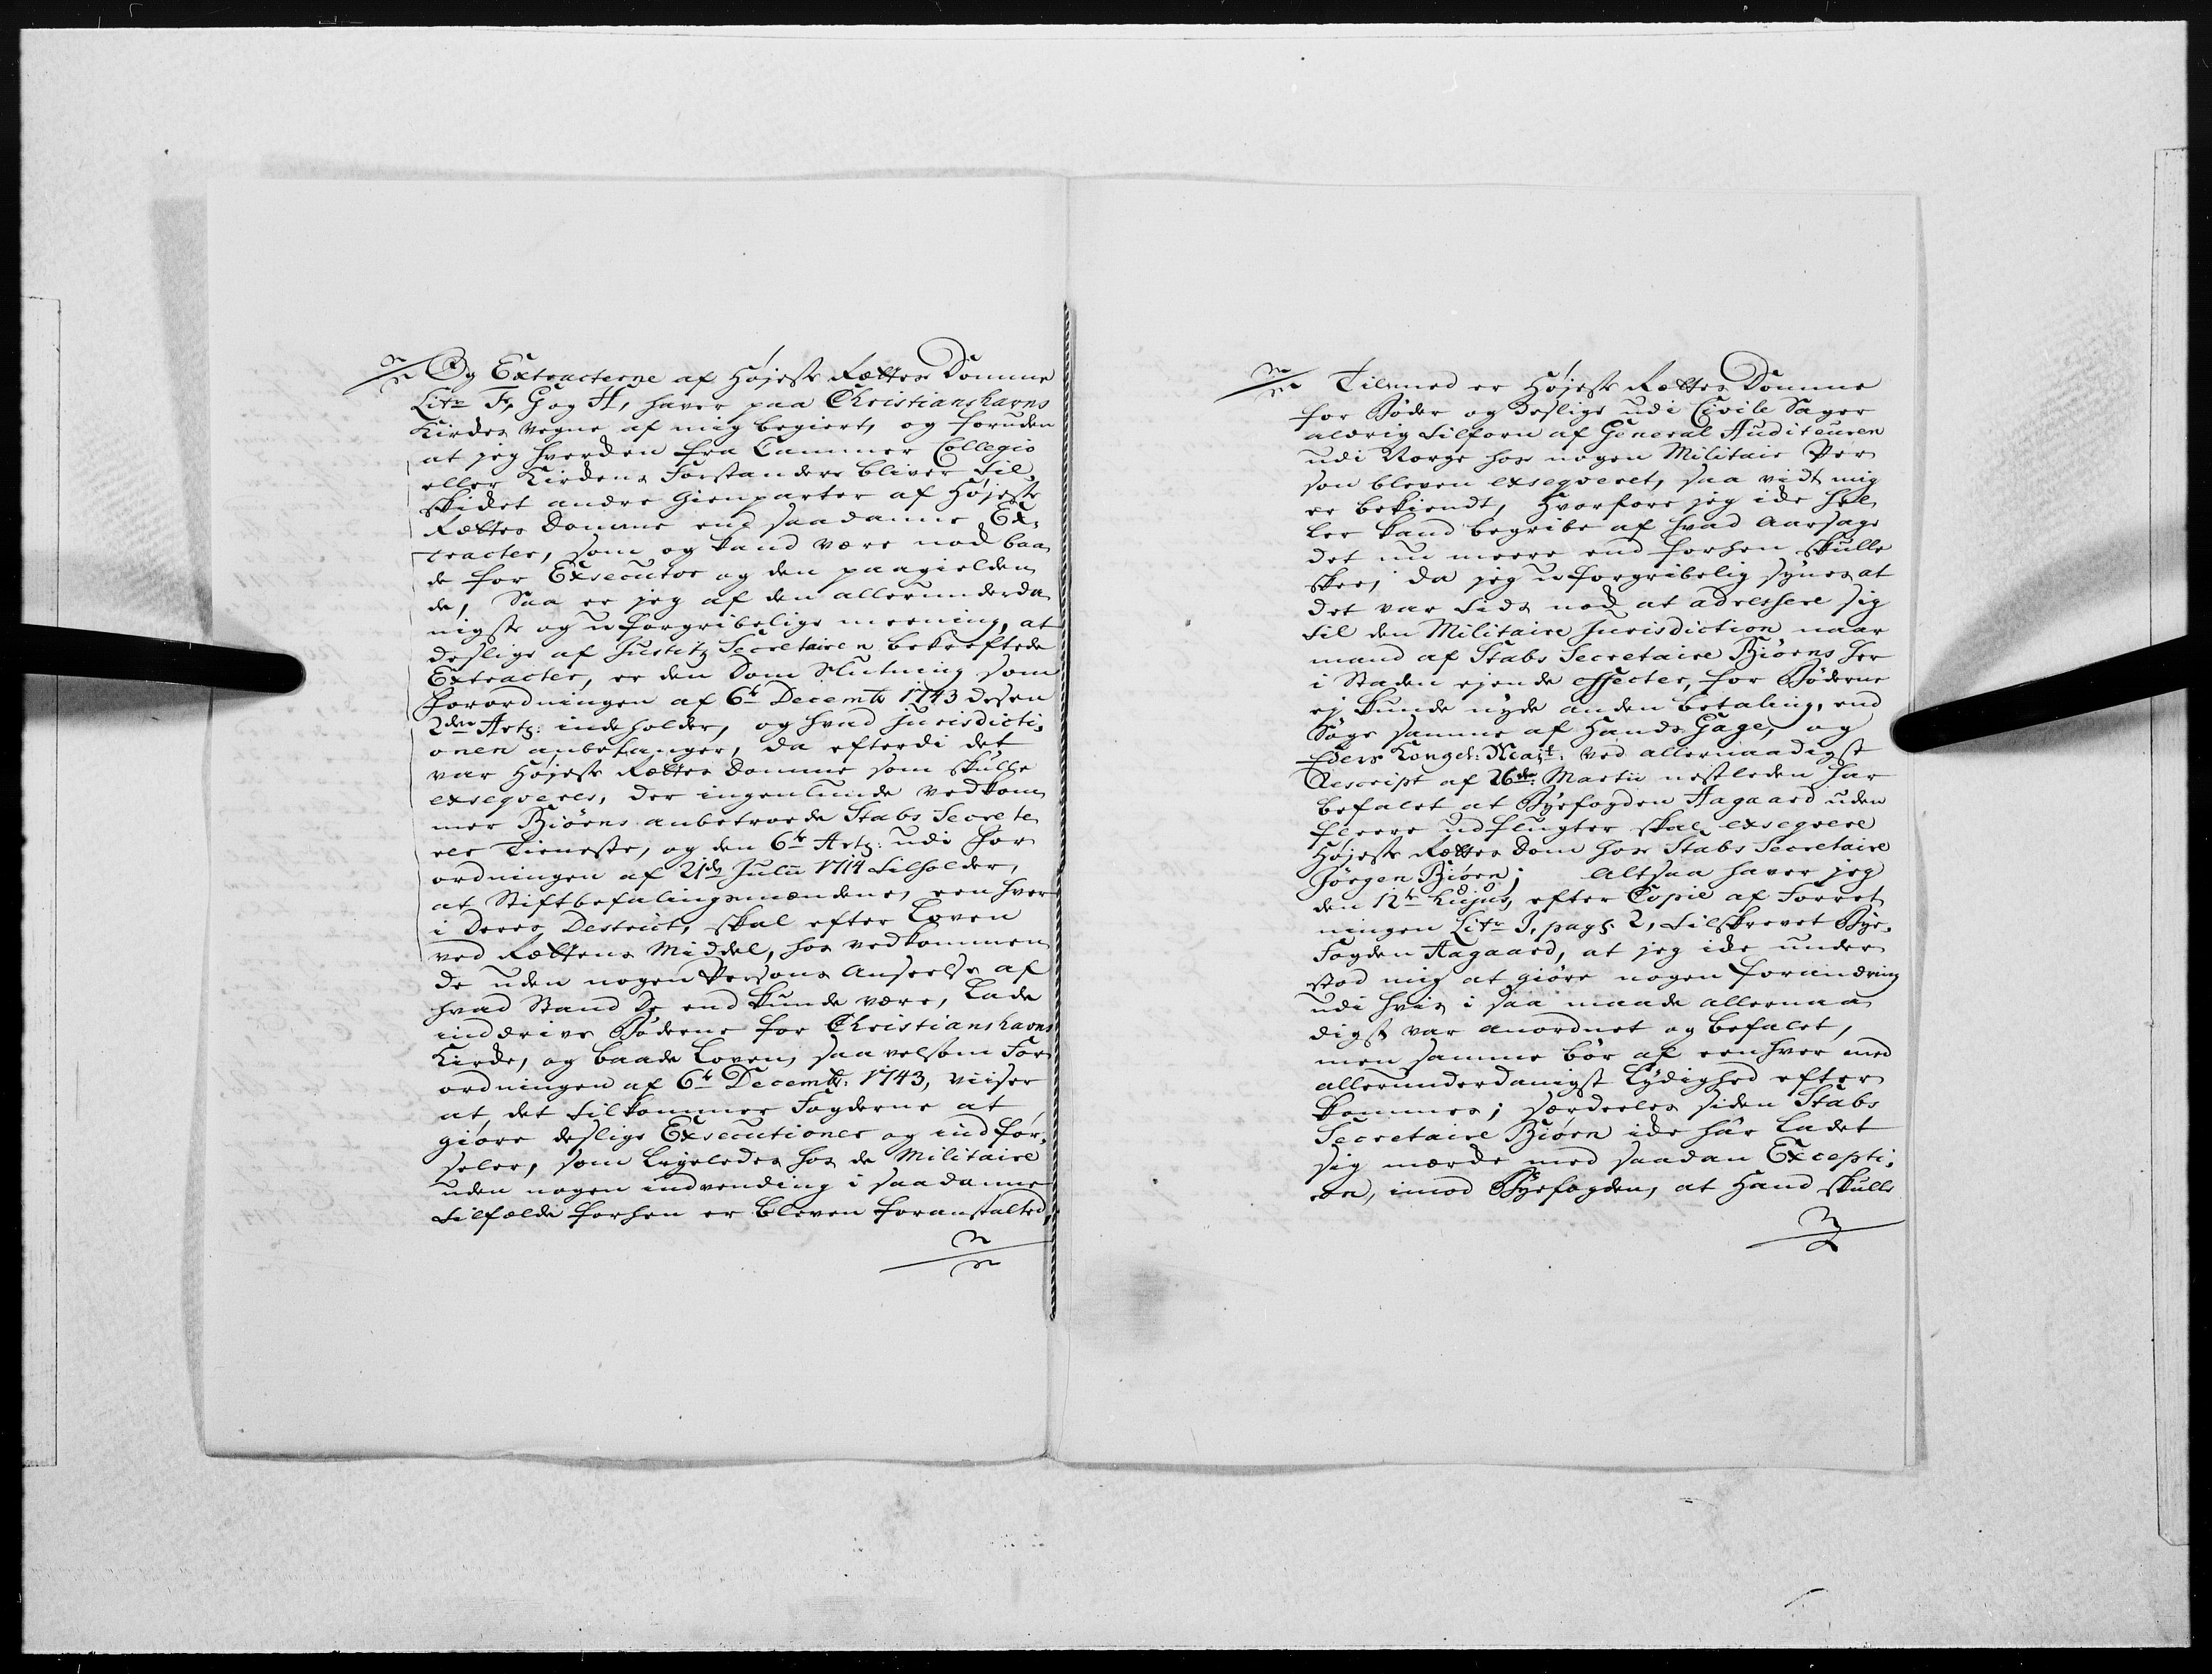 Og Extracterne af Højeste Rættes Domme
Litr. F, G og H, haver paa Christianshavns
Kirches vegne af mig begiert, og foruden
at jeg hverchen fra Cammer Collegio
eller Kirchens Forstandere bliver til
skichet andre Gienparter af Højeste
Rættes Domme end saadanne Ex-
tracter, som og kand være nock baa
de for Exsecutor og den paagielden
de, Saa er jeg af den allerunderda
nigste og uforgribelige meening, at
deslige af Justitz Secretairen bekreftede
Extracter, er den Dom Slutning som
Forordningen af 6te Decembr 1743 desen
2den Art: indeholder, og hvad Jurisdicti-
onen anbelanger, da efterdi det
var Højeste Rættes Domme som skulle
exseqveres, der ingenlunde vedkom
mer Biørns anbetroede Stabs Secrete
rer Tieneste, og den 6te Art: udi For
ordningen af 21de Julii 1714 tilholder,
at Stiftbefalingsmændene, een hver
i Deres District, skal efter Loven
ved Rættens Middel, hos vedkommen
de uden nogen Persons Anseelse af
hvad Stand De end kunde være, Lade
inddrive Bøderne for Christianshavns
Kirche, og baade Loven, saavelsom For
ordningen af 6te Decembr: 1743, viiser
at, det tilkommer Fogderne at
giøre deslige Exsecutioner og indfør-
seler, som Ligeledes hos de Militaire
uden nogen indvending i saadanne
tilfælde forhen er bleven foranstalted,
Tilmed er Højeste Rættes Domme
for Bøder og deslige udi Civile Sager
aldrig tilforn af General Auditeuren
udi Norge hos nogen Militair Per
son bleven exseqveret, saa vidt mig
er bekiendt, Hvorfore jeg iche hel
ler kand begribe af hvad Aarsage
det nu meere end forhen skulle
skee, da jeg uforgribelig synes at
det var tids nock at adressere sig
til den Militaire Jurisdiction naar
mand af Stabs Secretaire Biørns her
i Staden ejende effecter, for Bøderne
ej kunde nyde anden betaling, end
Søge samme af Hands Gage, og
Eders Kongel: Mayt: ved allernaadigst
Rescript af 26de: Martii nestleden har
befalet at Byefogden Aagaard uden
fleere udflugter skal exseqvere
Højeste Rættes Dom hos Stabs Secretaire
Jørgen Biørn; Altsaa haver jeg
den 12te hujus, efter Copie af Forret
ningen Litr. I, pag: 2, tilskrevet Bye-
Fogden Aagaard, at jeg iche under
stod mig at giøre nogen forandring
udi hvis i saa maade allernaa
digst var anordnet og befalet,
men samme bør af een hver med
allerunderdanigst Lydighed efter
kommes; særdeeles siden Stabs
Secretaire Biørn iche har Ladet
sig mærche med saadan Excepti-
on, imod Byefogden, at Hand skulle